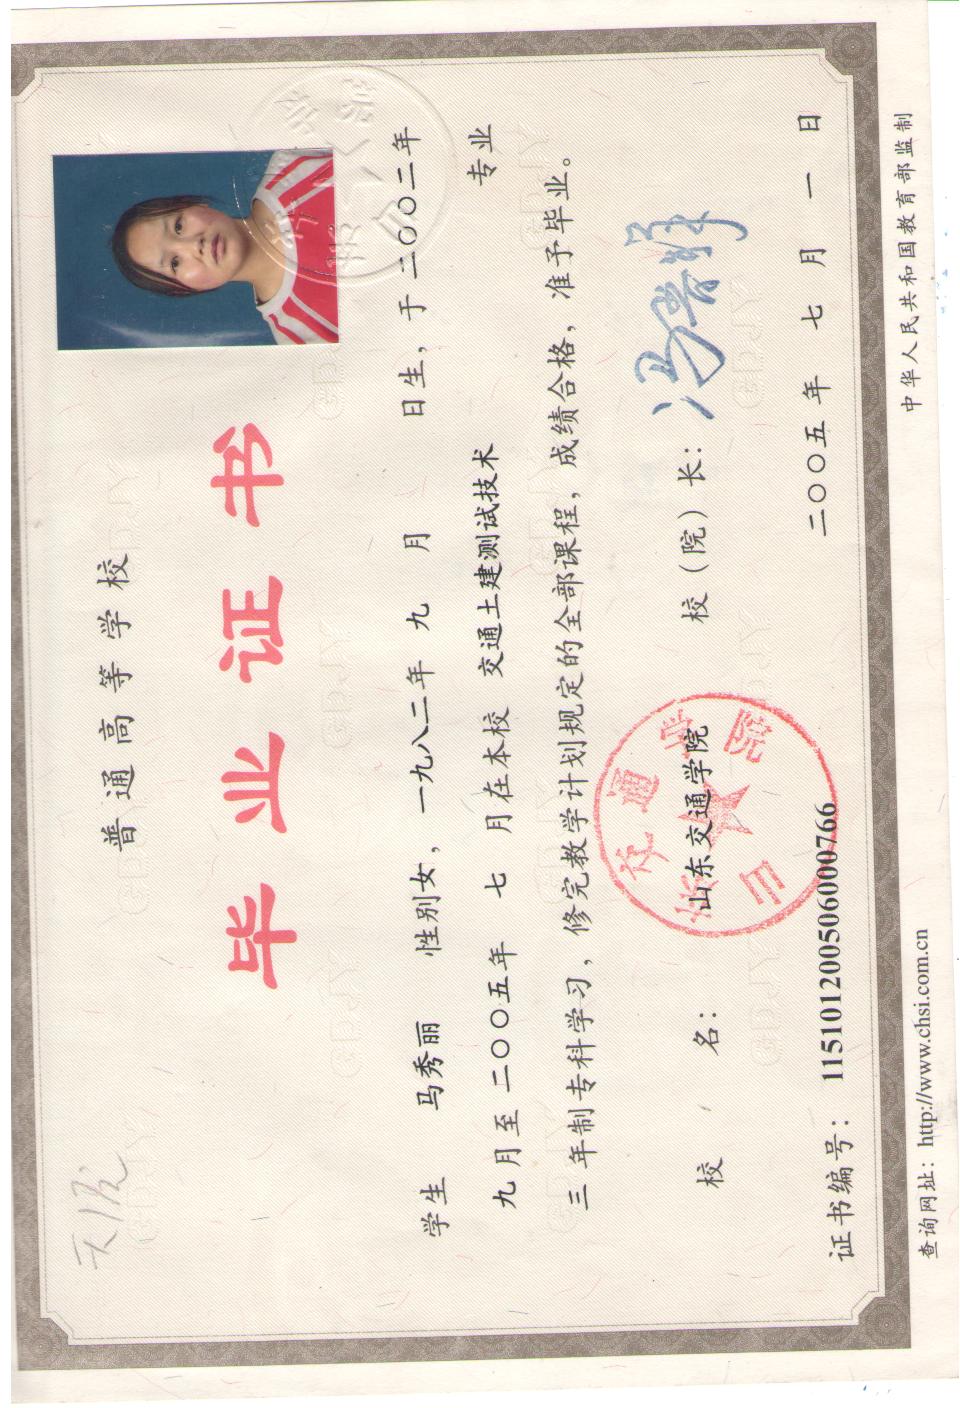 普通高等学校
毕业证书
学生 马秀丽 性别女，一九八二年 九 月 日生，于二〇〇二年
九月至二〇〇五年 七 月在本校 交通土建测试技术 专业
三年制专科学习，修完教学计划规定的全部课程，成绩合格，准予毕业。
校 名：山东交通学院 校（院）长：
证书编号：115101200506000766 二〇〇五年 七 月 一 日
查询网址：http://www.chsi.com.cn 中华人民共和国教育部监制